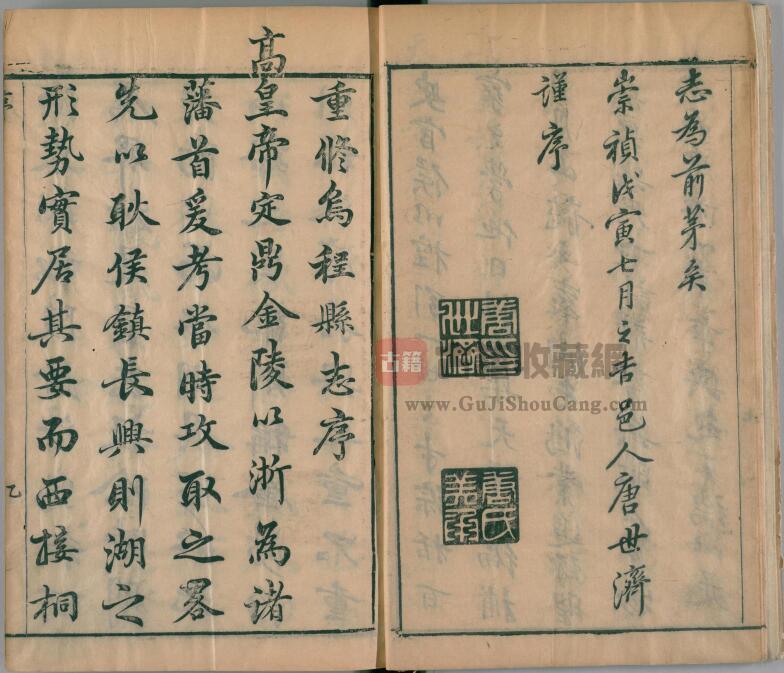 志為前茅矣
崇禎戊寅七月之吉邑人唐世濟
謹序
唐印世濟
唐氏美承
重修烏程縣志序
高皇帝定鼎金陵以浙為諸
藩首爰考當時攻取之畧
先以耿侯鎮長興則湖之
形勢實居其要而西接桐
古籍
收藏網
www.GuJiShouCang.com